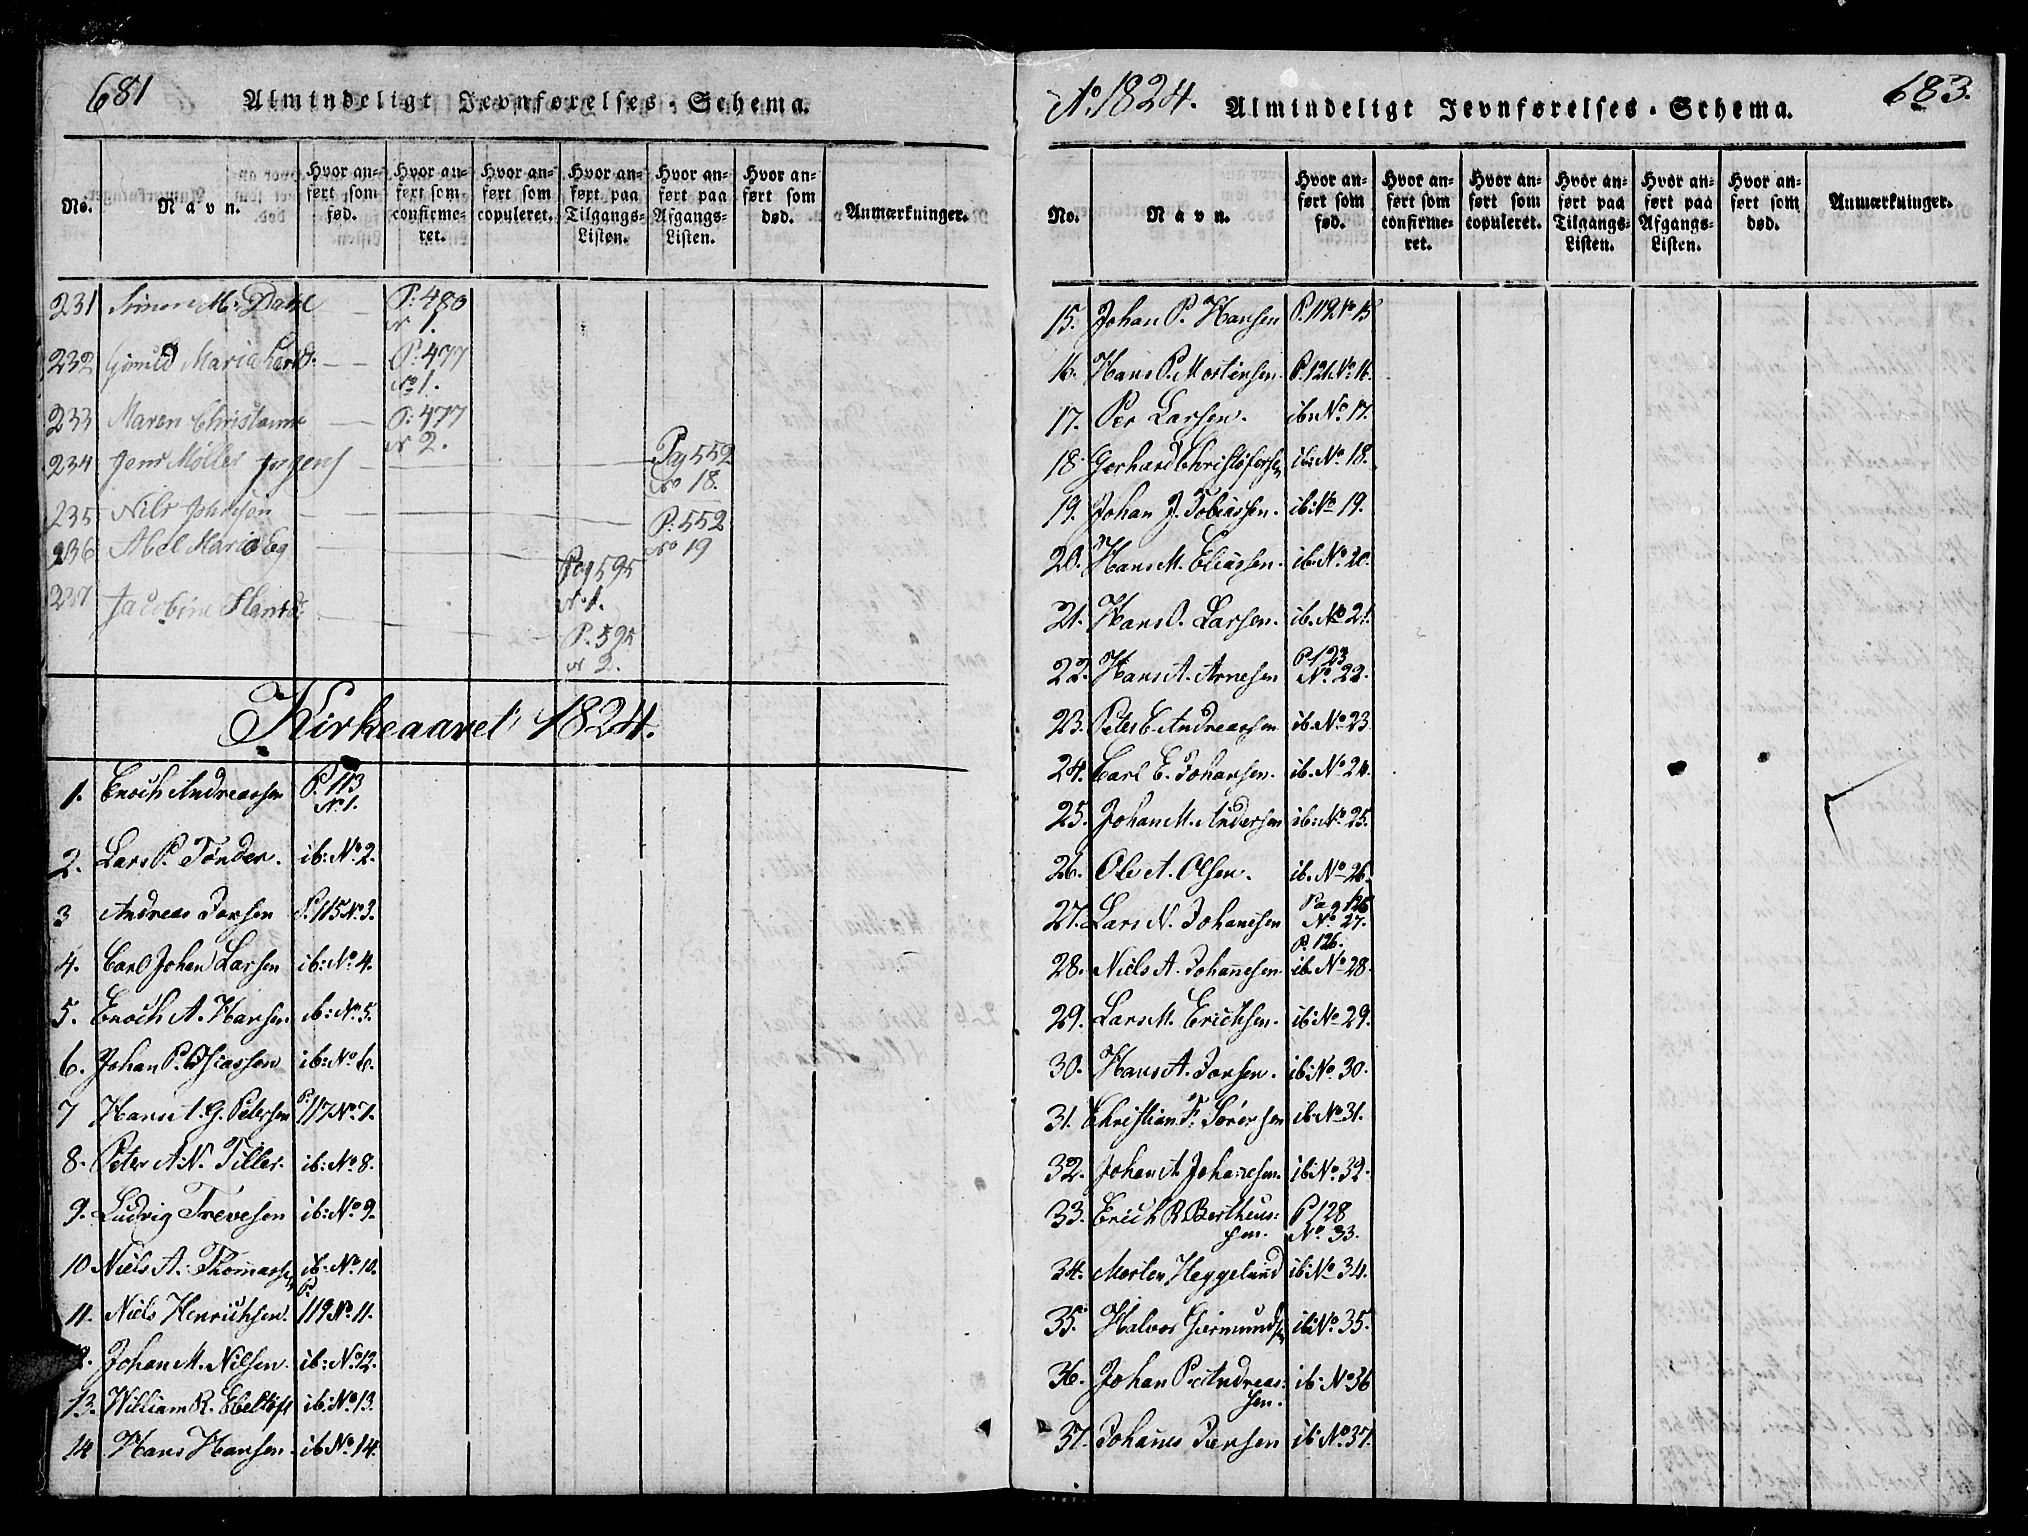 681
Almindeligt Jevnførelses-Schema.
No.
Navn.
Hvor anført som fød.
Hvor anført som confirmeret.
Hvor anført som copuleret.
Hvor anført paa Tilgangs-Listen.
Hvor anført paa Afgangs-Listen.
Hvor anført som død.
Anmærkninger.
231 Simon M: Dahl P: 480 N 1.
232 Maria P: 477 No 1.
233 Maren Christanna P: 477 N 2.
234 Jens Møller Jrgens Pag 552 No 18.
235 Nils Johnson P: 552 No 19
236 Abel Maria Eg Pag 595 N 1.
237 Jacobine P. 595 N 2.
Kirkeaaret 1824.
1. Enoch Andreassen P. 113 No 1.
2. Lars P. Tønder. ib: No 2.
3 Andreas Jonsen P. 115 No 3.
4. Carl Johan Larsen ib: No 4.
5. Enoch A. Hansen ib: No 5.
6. Johan P. ib: No 6.
7 Hans A. G. Petersen P. 117 No 7.
8. Peter A. N. Tiller. ib: No 8.
9. Ludvig Trevesen ib: No 9.
10 Niels A. Thomassen ib. No 10.
11. Niels Henrichsen. P. 119 No 11.
12. Johan M. Nilsen. ib: No 12.
13. William R. Ebeltoft ib. No 13.
14 Hans Hansen. ib No 14.
Ao 1824.
Almindeligt Jevnførelses-Schema.
683.
No.
Navn.
Hvor anført som fød.
Hvor anført som confirmeret.
Hvor anført som copuleret.
Hvor anført paa Tilgangs-Listen.
Hvor anført paa Afgangs-Listen.
Hvor anført som død.
Anmærkninger.
15. Johan P. Hansen P. 119 No 15
16. Hans P. Mortensen. P. 121 No 16.
17. Per Larsen. ib. No 17.
18. Gerhard Christofersen ib: No 18.
19. Johan J. Tobiassen. ib: No 19.
20. Hans M. Eliassen. ib. No 20.
21. Hans O. Larsen. ib. No 21.
22. Hans A. Arnesen P 123 No 22.
23. Peter E. Andreassen ib. No 23.
24. Carl E. Johansen. ib. No 24.
25. Johan M. Andersen ib: No 25.
26. Ole A. Olsen. ib. No 26.
27. Lars N. Johanesen Pag 126 No 27.
28. Niels A. Johannesen P. 126. ib. No 28.
29. Lars M. Erichsen. ib: No 29.
30. Hans A. Jonsen. ib: No 30.
31. Christian F. Sørensen ib. No 31.
32. Johan A Johanesen. ib. No 32.
33. Erich R. Bertheussen. P 128 No 33.
34. Morten Heggelund ib: No 34.
35. Halvor Giermundsen ib. No 35.
36. Johan P. Andreassen. ib. No 36
37. Johannes Jensen ib. No 37.